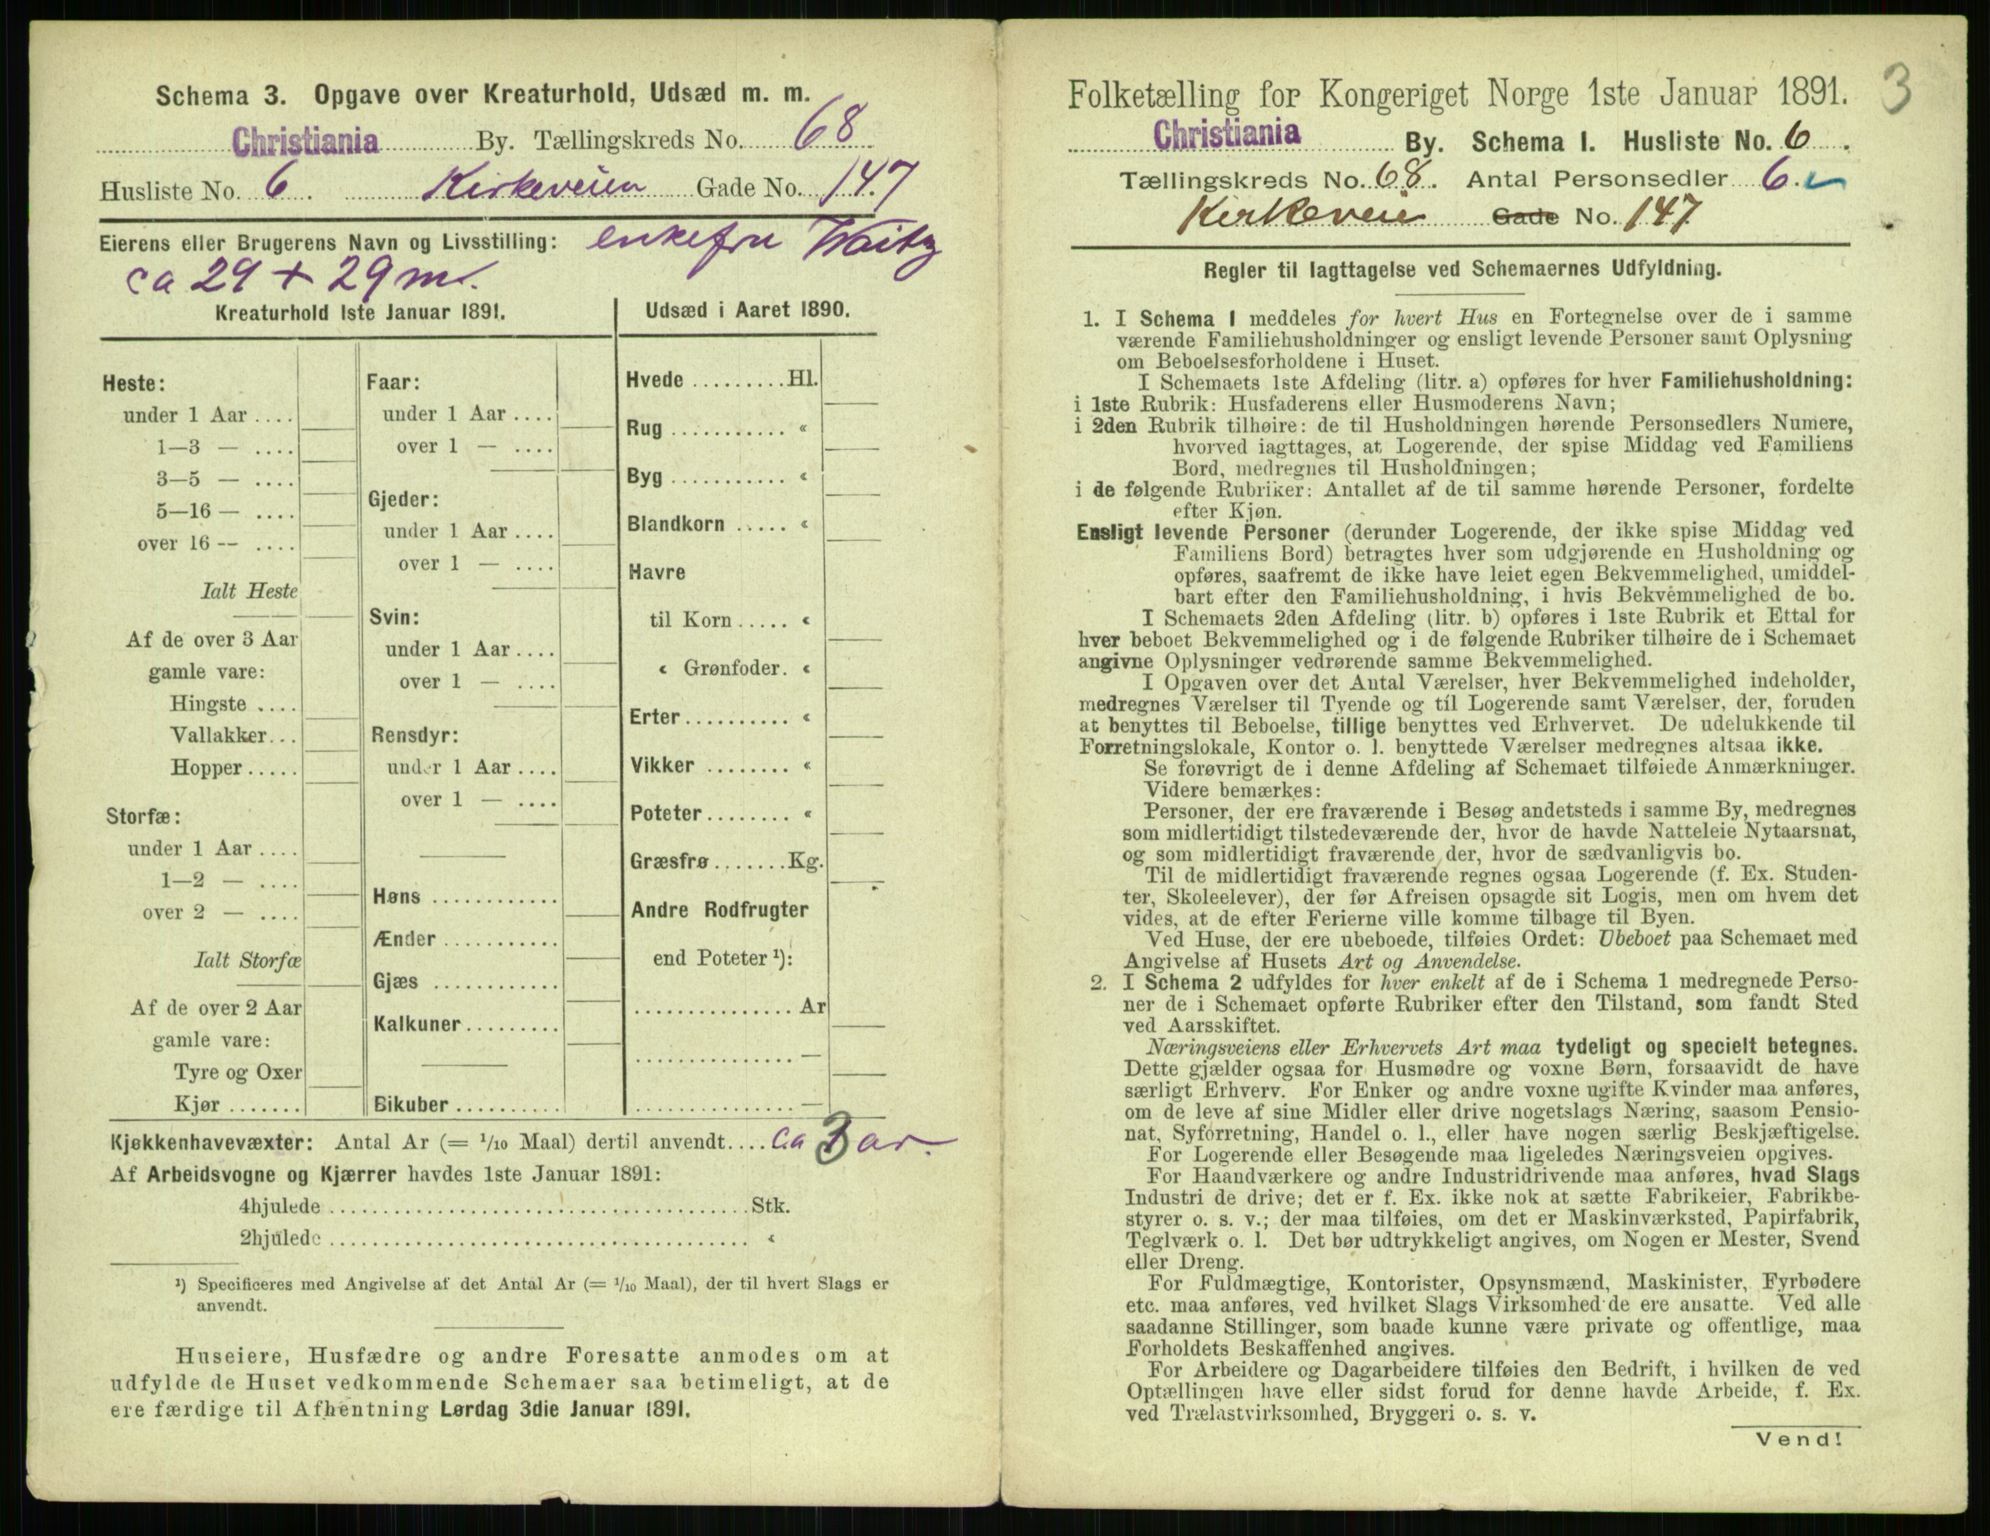 Schema 3. Opgave over Kreaturhold, Udsæd m. m.
Christiania By. Tællingskreds No. 68
Husliste No. 6 . Kirkeveien Gade No. 147
Eierens eller Brugerens Navn og Livsstilling: enkefru Waitz
ca 29 + 29 m.
Kreaturhold 1ste Januar 1891.
Heste:
under 1 Aar ....
1—3 — ....
3—5 — ....
5—16 — ....
over 16 — ....
Ialt Heste
Af de over 3 Aar
gamle vare:
Hingste ....
Vallakker...
Hopper .....
Storfæ:
under 1 Aar ....
1—2 — ....
over 2 — ....
Ialt Storfæ
Af de over 2 Aar
gamle vare:
Tyre og Oxer
Kjør .......
Faar:
under 1 Aar ....
over 1 — ....
Gjeder:
under 1 Aar ....
over 1 — ....
Svin:
under 1 Aar ....
over 1 — ....
Rensdyr:
under 1 Aar ....
over 1 — ....
Høns ............
Ænder ...........
Gjæs ............
Kalkuner.........
Bikuber ..........
Udsæd i Aaret 1890.
Hvede .........Hl.
Rug ........... “
Byg ........... “
Blandkorn ..... “
Havre
til Korn ..... “
“ Grønfoder. “
Erter.......... “
Vikker ........ “
Poteter........ “
Græsfrø .......Kg.
Andre Rodfrugter
end Poteter ¹):
............... Ar
............... —
............... —
Kjøkkenhavevæxter: Antal Ar (= 1/10 Maal) dertil anvendt.... ca 3 ar.
Af Arbeidsvogne og Kjærrer havdes 1ste Januar 1891:
4hjulede ........................................Stk.
2hjulede ........................................ “
¹) Specificeres med Angivelse af det Antal Ar (= 1/10 Maal), der til hvert Slags er
anvendt.
Huseiere, Husfædre og andre Foresatte anmodes om at
udfylde de Huset vedkommende Schemaer saa betimeligt, at de
ere færdige til Afhentning Lørdag 3die Januar 1891.
3
Folketælling for Kongeriget Norge 1ste Januar 1891.
Christiania By. Schema 1. Husliste No. 6 .
Tællingskreds No. 68. Antal Personsedler 6.
Kirkeveie Gade No. 147
Regler til Iagttagelse ved Schemaernes Udfyldning.
1. I Schema 1 meddeles for hvert Hus en Fortegnelse over de i samme
værende Familiehusholdninger og ensligt levende Personer samt Oplysning
om Beboelsesforholdene i Huset.
I Schemaets 1ste Afdeling (litr. a) opføres for hver Familiehusholdning:
i 1ste Rubrik: Husfaderens eller Husmoderens Navn;
i 2den Rubrik tilhøire: de til Husholdningen hørende Personsedlers Numere,
hvorved iagttages, at Logerende, der spise Middag ved Familiens
Bord, medregnes til Husholdningen;
i de følgende Rubriker: Antallet af de til samme hørende Personer, fordelte
efter Kjøn.
Ensligt levende Personer (derunder Logerende, der ikke spise Middag ved
Familiens Bord) betragtes hver som udgjørende en Husholdning og
opføres, saafremt de ikke have leiet egen Bekvemmelighed, umiddel-
bart efter den Familiehusholdning, i hvis Bekvemmelighed de bo.
I Schemaets 2den Afdeling (litr. b) opføres i 1ste Rubrik et Ettal for
hver beboet Bekvemmelighed og i de følgende Rubriker tilhøire de i Schemaet
angivne Oplysninger vedrørende samme Bekvemmelighed.
I Opgaven over det Antal Værelser, hver Bekvemmelighed indeholder,
medregnes Værelser til Tyende og til Logerende samt Værelser, der, foruden
at benyttes til Beboelse, tillige benyttes ved Erhvervet. De udelukkende til
Forretningslokale, Kontor o. l. benyttede Værelser medregnes altsaa ikke.
Se forøvrigt de i denne Afdeling af Schemaet tilføiede Anmærkninger.
Videre bemærkes:
Personer, der ere fraværende i Besøg andetsteds i samme By, medregnes
som midlertidigt tilstedeværende der, hvor de havde Natteleie Nytaarsnat,
og som midlertidigt fraværende der, hvor de sædvanligvis bo.
Til de midlertidigt fraværende regnes ogsaa Logerende (f. Ex. Studen-
ter, Skoleelever), der før Afreisen opsagde sit Logis, men om hvem det
vides, at de efter Ferierne ville komme tilbage til Byen.
Ved Huse, der ere ubeboede, tilføies Ordet: Ubeboet paa Schemaet med
Angivelse af Husets Art og Anvendelse.
2. I Schema 2 udfyldes for hver enkelt af de i Schema 1 medregnede Perso-
ner de i Schemaet opførte Rubriker efter den Tilstand, som fandt Sted
ved Aarsskiftet.
Næringsveiens eller Erhvervets Art maa tydeligt og specielt betegnes.
Dette gjælder ogsaa for Husmødre og voxne Børn, forsaavidt de have
særligt Erhverv. For Enker og andre voxne ugifte Kvinder maa anføres,
om de leve af sine Midler eller drive nogetslags Næring, saasom Pensio-
nat, Syforretning, Handel o. l., eller have nogen særlig Beskjæftigelse.
For Logerende eller Besøgende maa ligeledes Næringsveien opgives.
For Haandværkere og andre Industridrivende maa anføres, hvad Slags
Industri de drive; det er f. Ex. ikke nok at sætte Fabrikeier, Fabrikbe-
styrer o. s. v.; der maa tilføies, om det er Maskinværksted, Papirfabrik,
Teglværk o. l. Det bør udtrykkeligt angives, om Nogen er Mester, Svend
eller Dreng.
For Fuldmægtige, Kontorister, Opsynsmænd, Maskinister, Fyrbødere
etc. maa anføres, ved hvilket Slags Virksomhed de ere ansatte. Ved alle
saadanne Stillinger, som baade kunne være private og offentlige, maa
Forholdets Beskaffenhed angives.
For Arbeidere og Dagarbeidere tilføies den Bedrift, i hvilken de ved
Optællingen have eller sidst forud for denne havde Arbeide, f. Ex.
ved Trælastvirksomhed, Bryggeri o. s. v.
Vend!